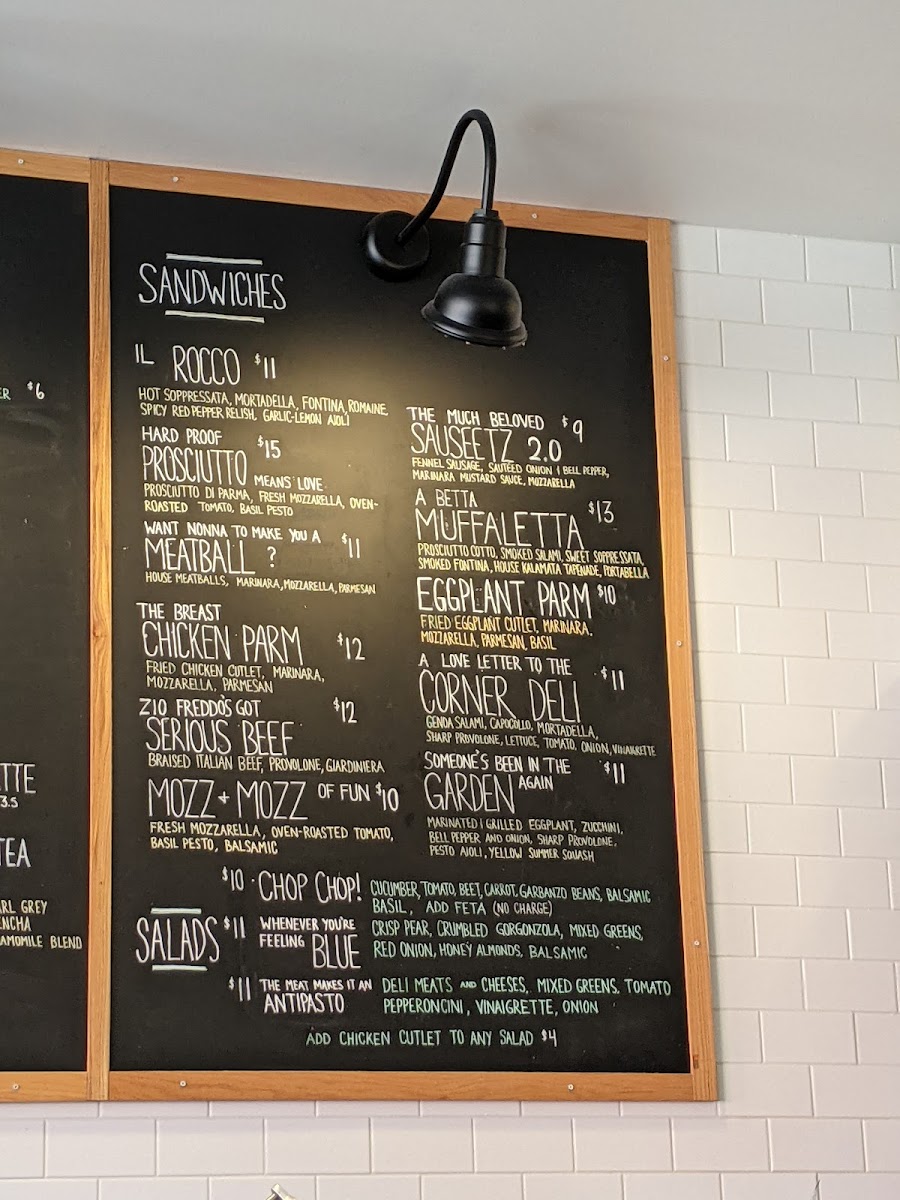 ER $6
TTE
3.5
TEA
ARL GREY
ENCHA
AMOMILE BLEND
SANDWICHES
IL ROCCO $11
HOT SOPPRESSATA, MORTADELLA, FONTINA, ROMAINE,
SPICY RED PEPPER RELISH, GARLIC-LEMON AIOLI
HARD PROOF $15
PROSCIUTTO MEANS LOVE
PROSCIUTTO DI PARMA, FRESH MOZZARELLA, OVEN-
ROASTED TOMATO, BASIL PESTO
WANT NONNA TO MAKE YOU A $11
MEATBALL ?
HOUSE MEATBALLS, MARINARA, MOZZARELLA, PARMESAN
THE BREAST
CHICKEN PARM $12
FRIED CHICKEN CUTLET, MARINARA,
MOZZARELLA, PARMESAN
ZIO FREDDO'S GOT $12
SERIOUS BEEF
BRAISED ITALIAN BEEF, PROVOLONE, GIARDINIERA
MOZZ + MOZZ OF FUN $10
FRESH MOZZARELLA, OVEN-ROASTED TOMATO,
BASIL PESTO, BALSAMIC
THE MUCH BELOVED $9
SAUSEETZ 2.0
FENNEL SAUSAGE, SAUTEED ONION & BELL PEPPER,
MARINARA MUSTARD SAUCE, MOZZARELLA
A BETTA $13
MUFFALETTA
PROSCIUTTO COTTO, SMOKED SALAMI, SWEET SOPPRESSATA,
SMOKED FONTINA, HOUSE KALAMATA TAPENADE, PORTABELLA
EGGPLANT PARM $10
FRIED EGGPLANT CUTLET, MARINARA,
MOZZARELLA, PARMESAN, BASIL
A LOVE LETTER TO THE $11
CORNER DELI
GENOA SALAMI, CAPOCOLLO, MORTADELLA,
SHARP PROVOLONE, LETTUCE, TOMATO, ONION, VINAIGRETTE
SOMEONE'S BEEN IN THE $11
GARDEN AGAIN
MARINATED & GRILLED EGGPLANT, ZUCCHINI,
BELL PEPPER AND ONION, SHARP PROVOLONE,
PESTO AIOLI, YELLOW SUMMER SQUASH
SALADS
$10 CHOP CHOP! CUCUMBER, TOMATO, BEET, CARROT, GARBANZO BEANS, BALSAMIC
BASIL, ADD FETA (NO CHARGE)
$11 WHENEVER YOU'RE CRISP PEAR, CRUMBLED GORGONZOLA, MIXED GREENS,
FEELING BLUE RED ONION, HONEY ALMONDS, BALSAMIC
$11 THE MEAT MAKES IT AN DELI MEATS AND CHEESES, MIXED GREENS, TOMATO
ANTIPASTO PEPPERONCINI, VINAIGRETTE, ONION
ADD CHICKEN CUTLET TO ANY SALAD $4